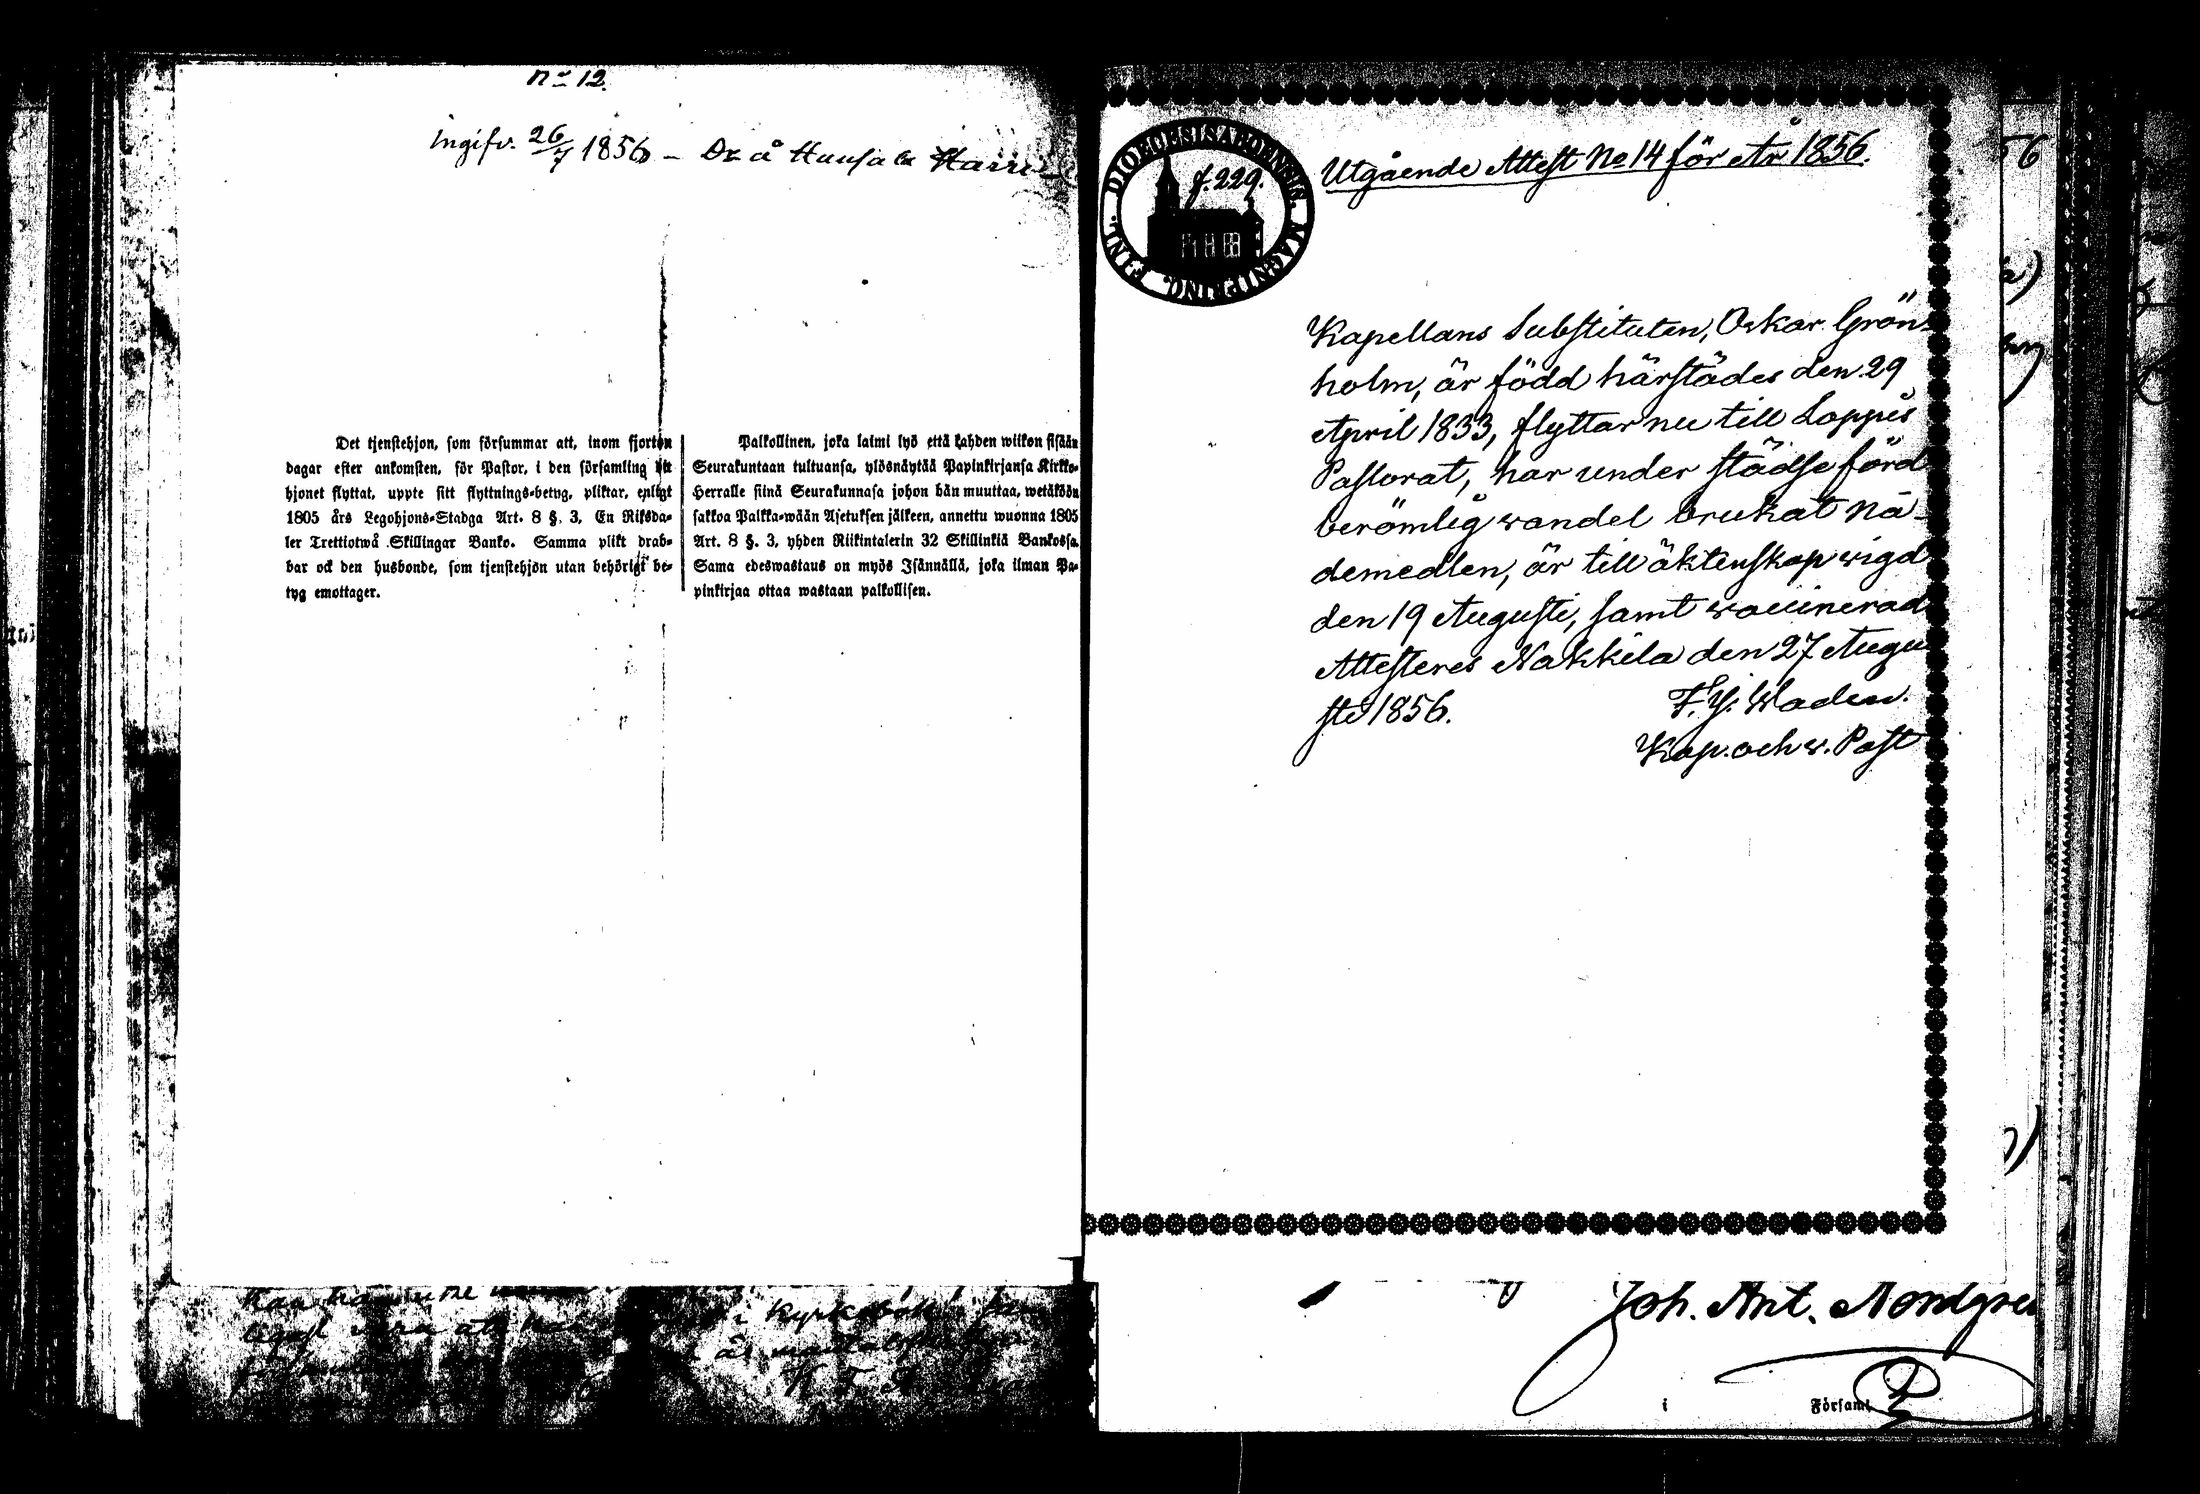 No 12.
Ingifv. 26/7 1856 –
Det tjenstehjon, som försummar att, inom fjorton
dagar efter ankomsten, för Pastor, i den församling dit
hjonet flyttat, uppte sitt flyttnings-betyg, pliktar, enligt
1805 års Legohjons-Stadga Art. 8 §. 3, En Riksda-
ler Trettiotwå Skillingar Banko. Samma plikt drab-
bar ock den husbonde, som tjenstehjon utan behörigt be-
tyg emottager.
Palkollinen, joka laimi lyö että kahden wiikon sisään
Seurakuntaan tultuansa, ylösnäyttää Papinkirjansa Kirkko-
Herralle siinä Seurakunnasa johon hän muuttaa, wetäköön
sakkoa Palkka-wään Asetuksen jälkeen, annettu wuonna 1805
Art. 8 §. 3, yhden Riikintalerin 32 Skillinkiä Bankossa.
Sama edeswastaus on myös Isännällä, joka ilman Pa-
pinkirjaa ottaa wastaan palkollisen.
i Kyrkobok
DIOECESIS ABOENSIS. MAGNI PRINC. FINL.
f. 229.
Utgående Attest No 14 för År 1856.
Kapellans Substituten, Oskar Grön-
holm, är född härstädes den 29
April 1833, flyttar nu till Loppis
Pastorat, har under städse förd
berömlig wandel brukat nå-
demedlen, är till äktenskap wigd
den 19 Augusti, samt waccinerad
Attesteres Nakkila den 27 Augu
sti 1856.
F. Y. Waden.
Kap. och w. Past
Joh. Ant. Nordgren
i Församl
56